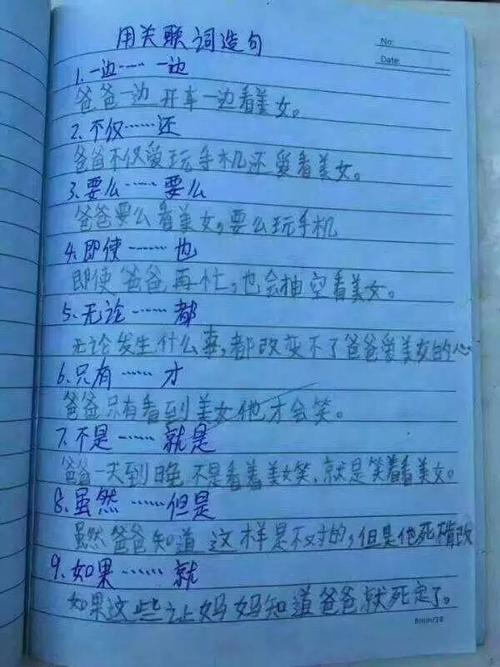 用关联词造句
No:
Date:
1.一边……一边
爸爸一边开车一边看美女。
2.不仅……还
爸爸不仅爱玩手机还爱看美女。
3.要么……要么
爸爸要么看美女,要么玩手机
4.即使……也
即使爸爸再忙,也会抽空看美女。
5.无论……都
无论发生什么事,都改变不了爸爸爱美女的心
6.只有……才
爸爸只有看到美女他才会笑。
7.不是……就是
爸爸一天到晚不是看着美女笑,就是笑着看美女。
8.虽然……但是
虽然爸爸知道这样是不对的,但是他死性改
9.如果……就
如果这些让妈妈知道爸爸就死定了。